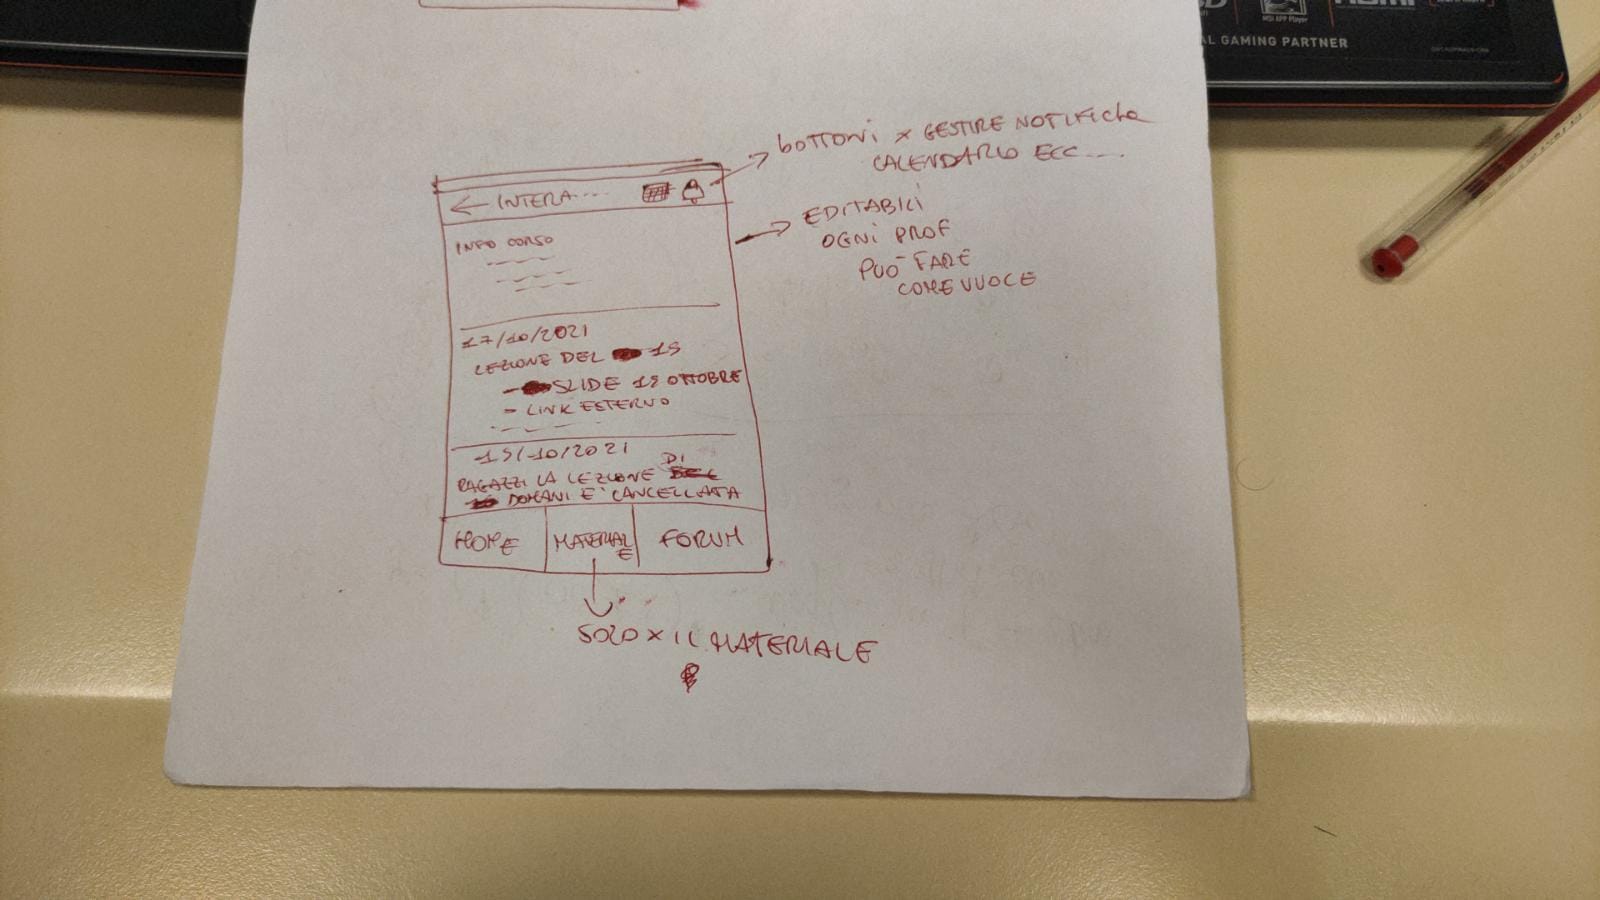 MSI APP Player
L GAMING PARTNER
BOTTONI X GESTIRE NOTIFICHE
CALENDARIO ECC....
← INTERA....
EDITABILI
OGNI PROF
PUO' FARE
COME VUOLE
INFO CORSO
17/10/2021
LEZIONE DEL 15
- SLIDE 15 OTTOBRE
- LINK ESTERNO
15/10/2021
RAGAZZI LA LEZIONE DI
DOMANI E' CANCELLATA
HOME
MATERIALE
FORUM
SOLO X IL MATERIALE